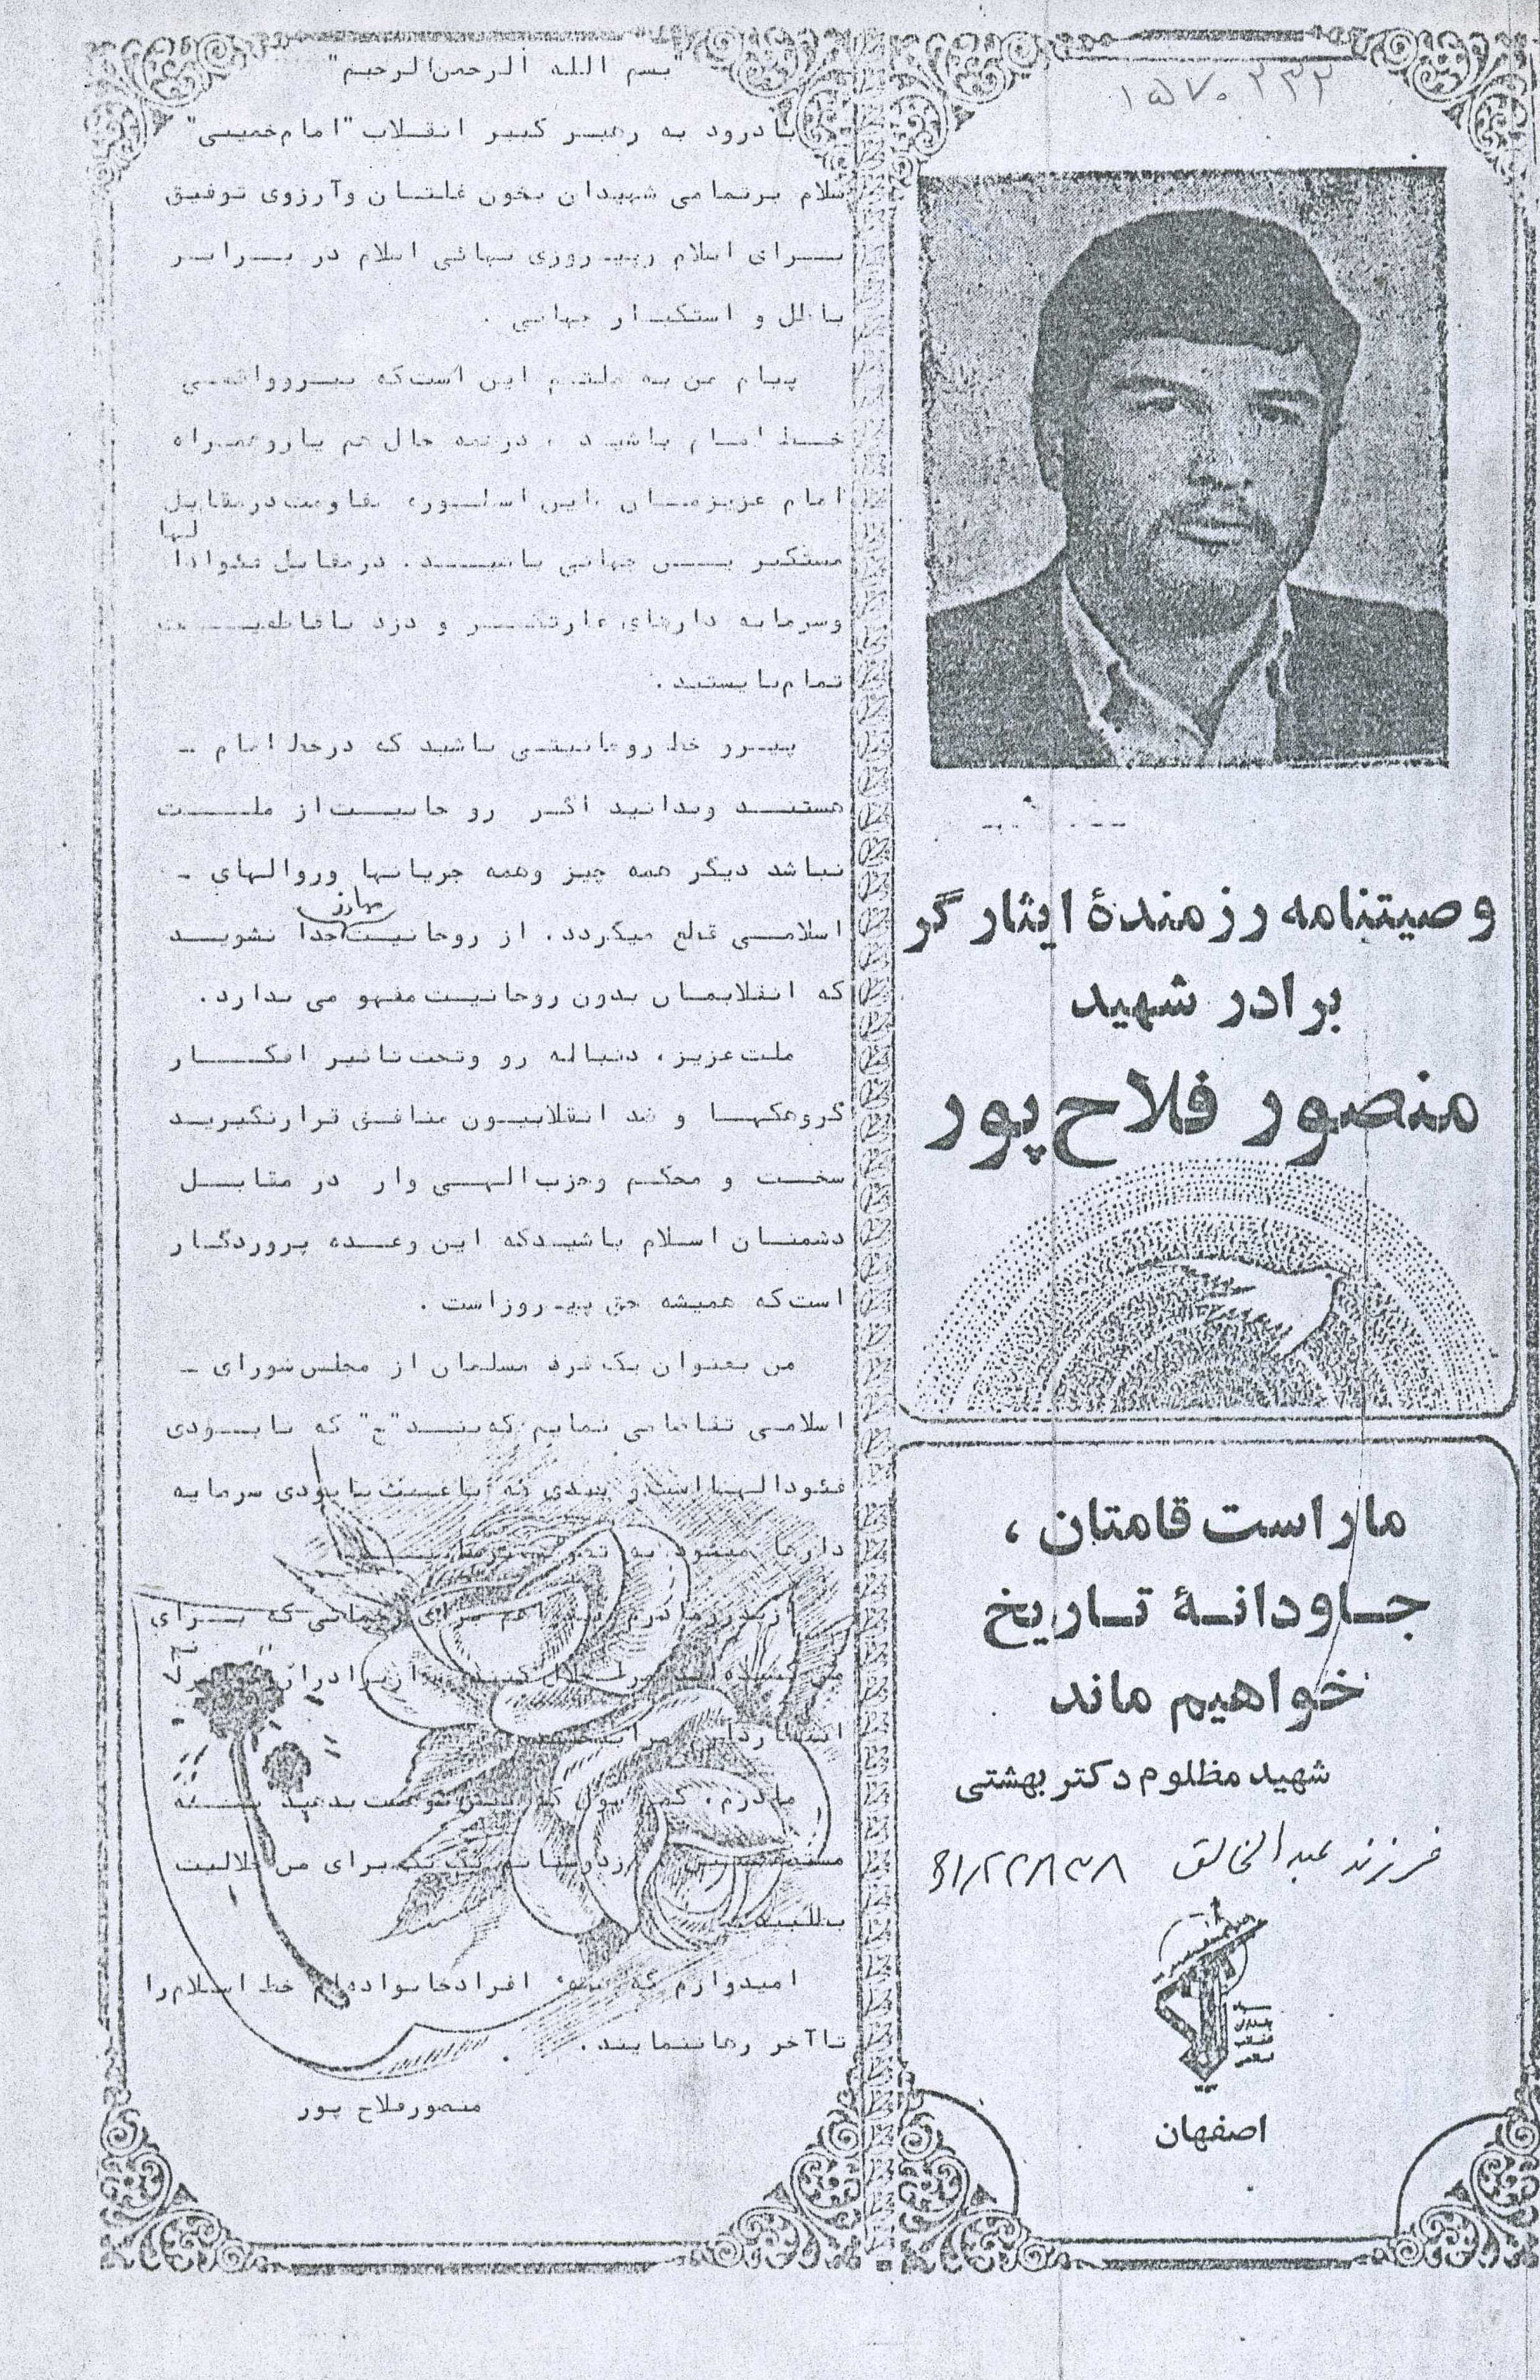 ۱۵۷۰۲۳۲
وصیتنامه رزمندهٔ ایثارگر
برادر شهید
منصور فلاح‌پور
ما راست قامتان ،
جـاودانـهٔ تـاریخ
خواهیم ماند
شهید مظلوم دکتر بهشتی
فرزند عبدالخالق
سپاه
پاسداران
انقلاب
اسلامی
اصفهان
"بسم الله الرحمن الرحیم"
با درود به رهبر کبیر انقلاب "امام خمینی"
سلام بر تمامی شهیدان بخون غلتان و آرزوی توفیق
برای اسلام و پیروزی نهائی اسلام در برابر
باطل و استکبار جهانی .
پیام من به ملتم این است که پیرو واقعی
خط امام باشید ، در همه حال هم یار و همراه
امام عزیزمان ،این اسطوره مقاومت در مقابل
مستکبرین جهانی باشید . در مقابل فئودالها
و سرمایه دارهای غارتگر و دزد با قاطعیت
تمام بایستید .
پیرو خط روحانیتی باشید که در خط امام ـ
هستند و بدانید اگر روحانیت از ملت
نباشد دیگر همه چیز و همه جریانها و روالهای ـ
اسلامی قطع میگردد . از روحانیت مبارز جدا نشوید
که انقلابمان بدون روحانیت مفهومی ندارد .
ملت عزیز ، دنباله رو و تحت تاثیر افکار
گروهکها و ضد انقلابیون منافق قرار نگیرید
سخت و محکم و حزب الهی وار در مقابل
دشمنان اسلام باشید که این وعده پروردگار
است که همیشه حق پیروز است .
من بعنوان یک فرد مسلمان از مجلس شورای ـ
اسلامی تقاضا می نمایم که بند "ج" که نابودی
فئودالها است و بندی که باعث نابودی سرمایه
دارها میشود به تصویب برسانید
از پدر و مادرم میخواهم برای زحماتی که برای
من کشیده اند مرا حلال کنند و از برادران
مرا ببخشند
مادرم ، کمی پول که پیش توست بدهید به
مستضعفین و از دوستانم یک یک برای من حلالیت
بطلبید .
امیدوارم که همه افراد خانواده ام خط اسلام را
تا آخر رها ننمایند .
منصور فلاح پور